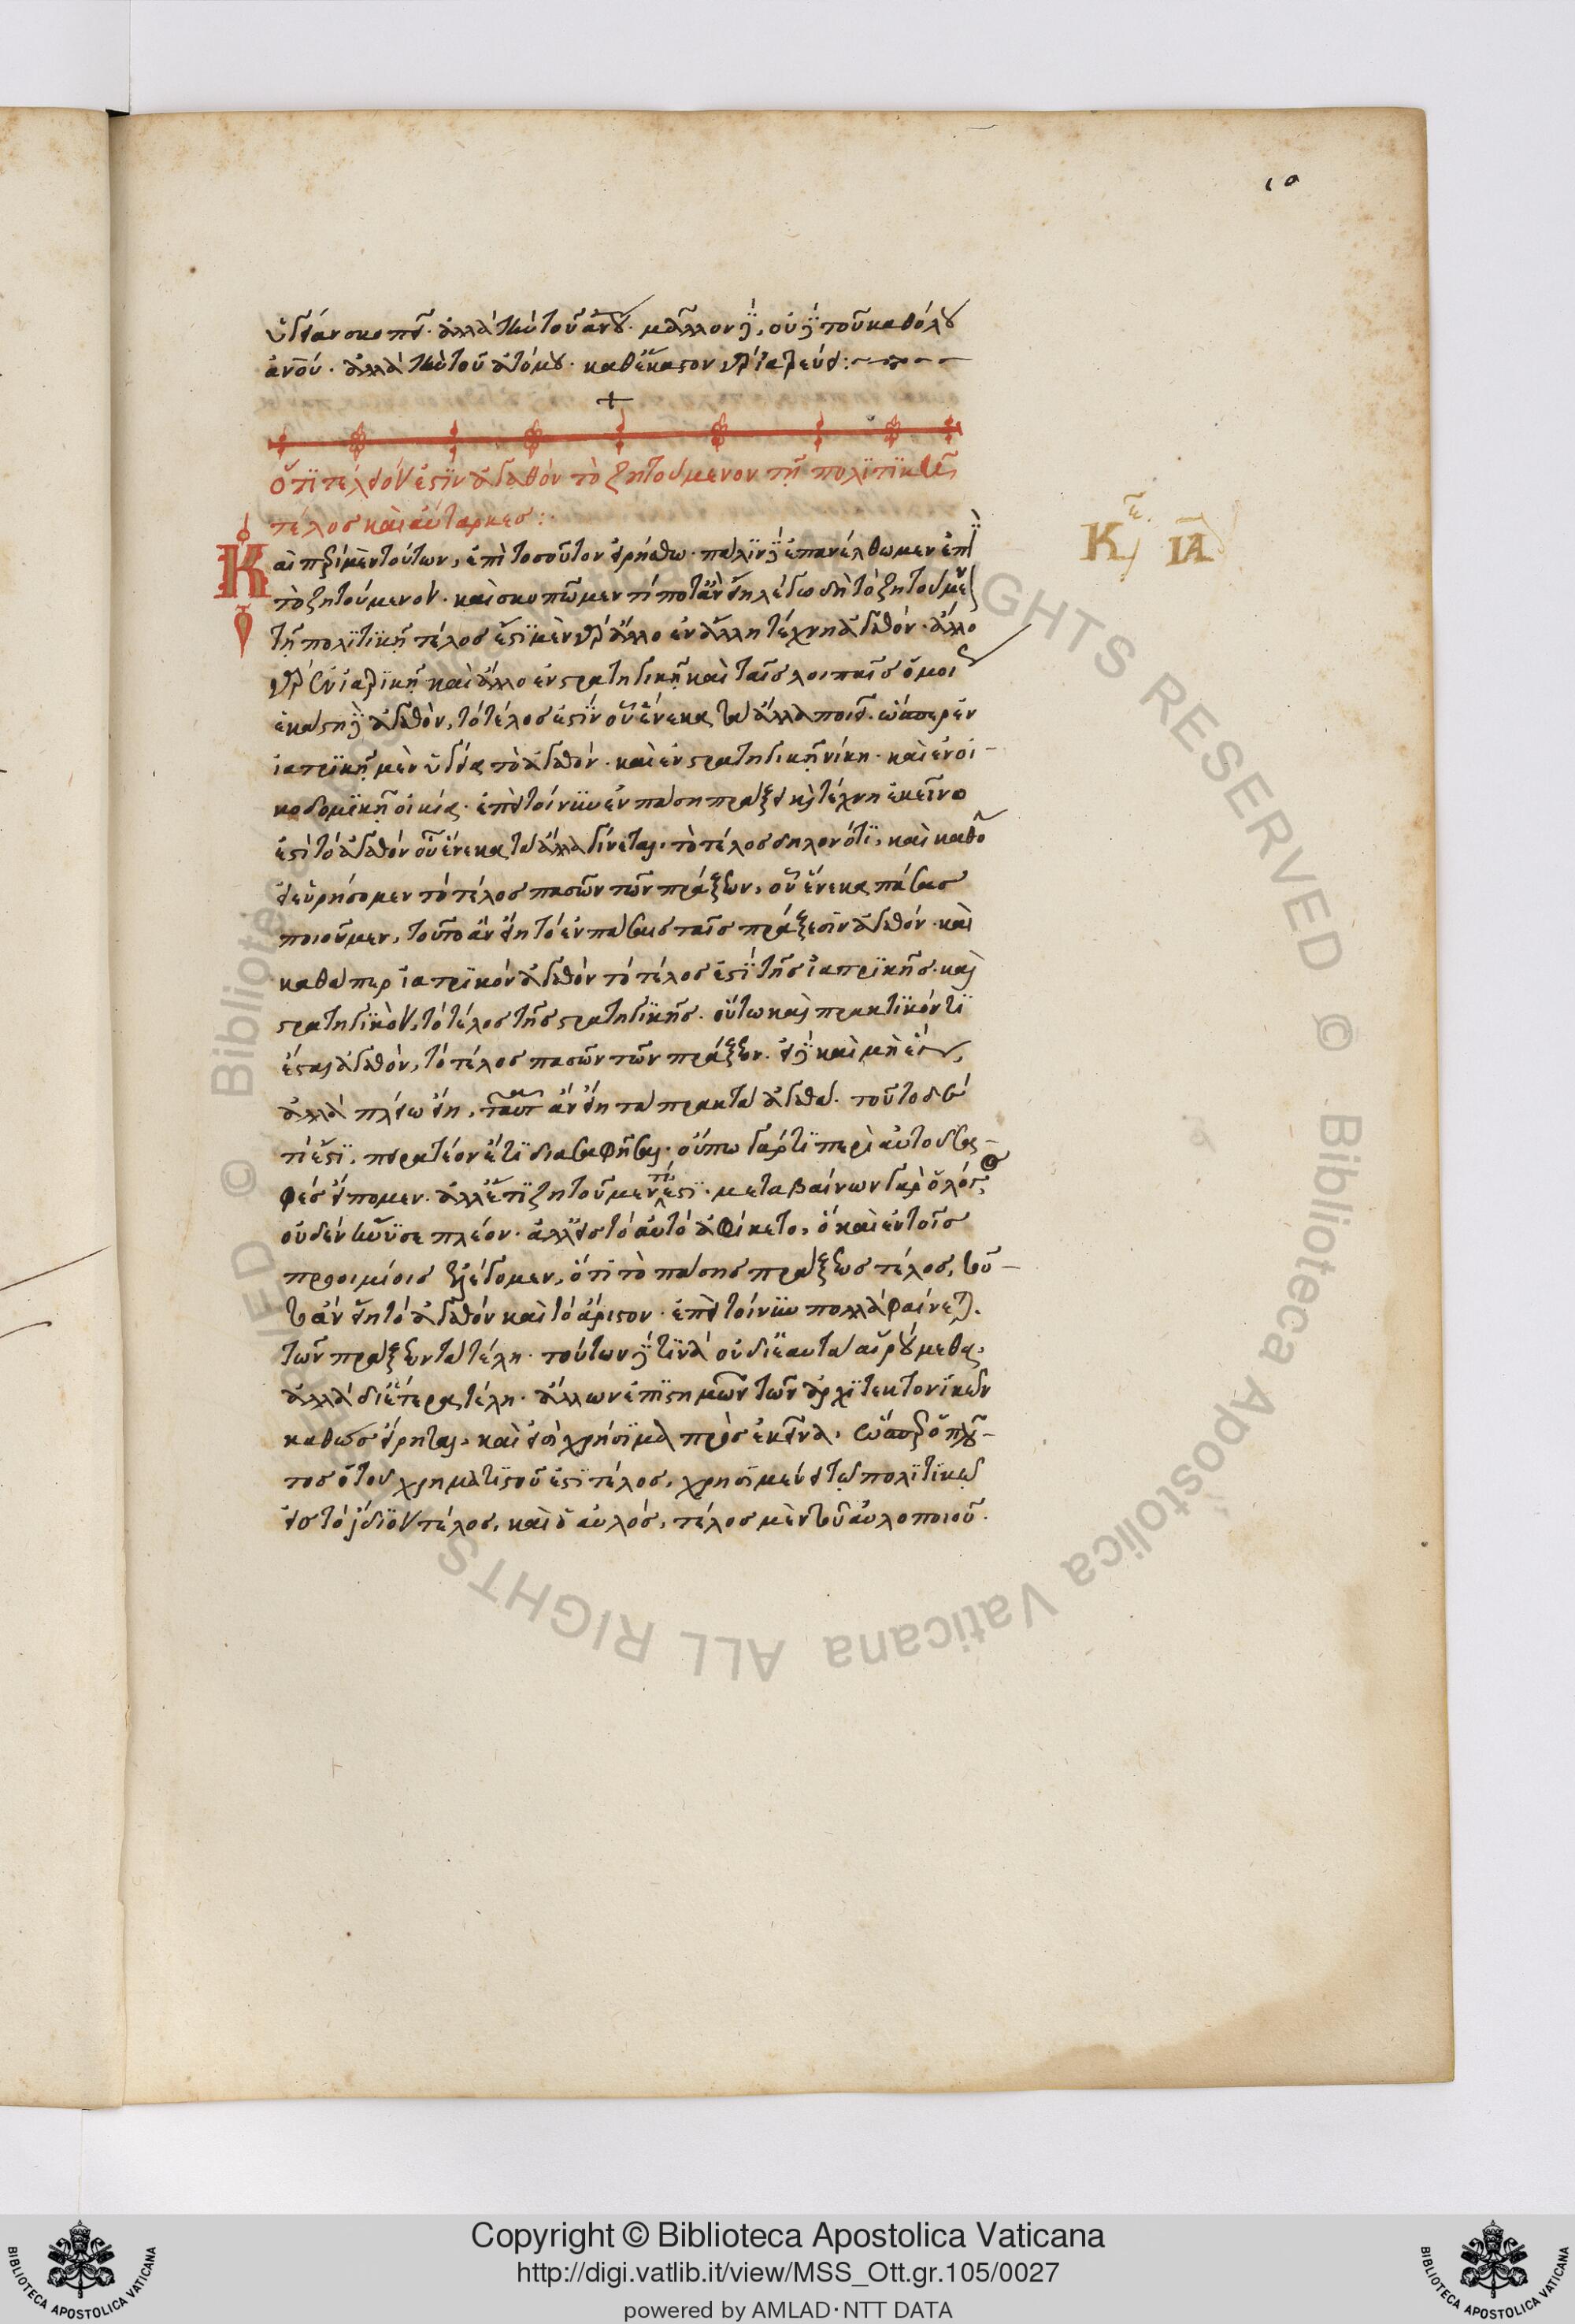 ια
ὑγίειαν σκοπεῖ. ἀλλὰ τὴν τοῦ ἀνου. μᾶλλον δὲ, οὐδὲ τοῦ καθόλου
ἀνου. ἀλλὰ τὴν τοῦ ἀτόμου. καθέκαστον γὰρ ἰατρεύει:
ὅτι τέλειόν ἐστιν ἀγαθὸν τὸ ζητούμενον τῇ πολιτικῇ
τέλος καὶ αὔταρκες:
Καὶ περὶ μὲν τούτων, ἐπὶ τοσοῦτον εἰρήσθω. πάλιν δὲ ἐπανέλθωμεν ἐπὶ
τὸ ζητούμενον. καὶ σκοπῶμεν τί ποτ' ἂν εἴη λέγω δὴ τὸ ζητούμενον
τῇ πολιτικῇ τέλος ἔστι μὲν γὰρ ἄλλο ἐν ἄλλη τέχνη ἀγαθόν. ἄλλο
γὰρ ἐν ἰατρικῇ καὶ ἄλλο ἐν στρατηγικῇ καὶ ταῖς λοιπαῖς ὁμοίως
ἑκάστη δὲ ἀγαθὸν, τὸ τέλος ἐστὶν οὗ ἕνεκα τὰ ἄλλα ποιεῖ. ὥσπερ ἐν
ἰατρικῇ μὲν ὑγίεια τὸ ἀγαθόν. καὶ ἐν στρατηγικῇ νίκη. καὶ ἐν οἰ-
κοδομικῇ οἰκία. ἐπεὶ τοίνυν ἐν πάση πράξει καὶ τέχνη ἐκεῖνο
ἐστὶ τὸ ἀγαθὸν οὗ ἕνεκα τὰ ἄλλα γίνεται. τὸ τέλος δηλονότι, καὶ καθὸ
εὑρήσομεν τὸ τέλος πασῶν τῶν πράξεων, οὗ ἕνεκα πάσας
ποιοῦμεν, τοῦτο ἂν εἴη τὸ ἐν πάσαις ταῖς πράξεσιν ἀγαθόν. καὶ
καθάπερ ἰατρικὸν ἀγαθὸν τὸ τέλος ἐστὶ τῆς ἰατρικῆς. καὶ
στρατηγικὸν, τὸ τέλος τῆς στρατηγικῆς. οὕτω καὶ πρακτικόν τι
ἔσται ἀγαθὸν, τὸ τέλος πασῶν τῶν πράξεων. εἰ δὲ καὶ μὴ ἓν,
ἀλλὰ πλείω εἴη, ταῦτα ἂν εἴη τὰ πρακτὰ ἀγαθά. τοῦτο δὲ
τί ἐστι, πειρατέον ἔτι διασαφῆσαι. οὔπω γάρ τι περὶ αὐτοῦ σα-
φὲς εἴπομεν. ἀλλ' ἔτι ζητοῦμεν τί ἐστι. μεταβαίνων γὰρ ὁ λόγος
οὐδὲν ἤνυσε πλέον. ἀλλ' εἰς τὸ αὐτὸ ἀφίκετο, ὃ καὶ ἐν τοῖς
προοιμίοις ἐλέγομεν, ὅτι τὸ πάσης πράξεως τέλος, τοῦ-
τ' ἂν εἴη τὸ ἀγαθὸν καὶ τὸ ἄριστον. ἐπεὶ τοίνυν πολλὰ φαίνεται
τῶν πράξεων τὰ τέλη. τούτων δὲ τινὰ οὐ δι' ἑαυτὰ αἱρούμεθα,
ἀλλὰ δι' ἕτερα τέλη. ἄλλων ἐπιστημῶν τῶν ἀρχιτεκτονικῶν
καθὼς εἴρηται, καὶ εἰσὶ χρήσιμα πρὸς ἐκεῖνα, ὥσπερ ὁ πλοῦ-
τος ὃ τοῦ χρηματιστοῦ ἐστὶ τέλος, χρησιμεύει τῷ πολιτικῷ
εἰς τὸ ἴδιον τέλος, καὶ ὁ αὐλός, τέλος μὲν τοῦ αὐλοποιοῦ.
Κ ε. ΙΑ
© Biblioteca Apostolica Vaticana ALL RIGHTS RESERVED
Copyright © Biblioteca Apostolica Vaticana
http://digi.vatlib.it/view/MSS_Ott.gr.105/0027
powered by AMLAD·NTT DATA
BIBLIOTECA APOSTOLICA VATICANA
BIBLIOTECA APOSTOLICA VATICANA